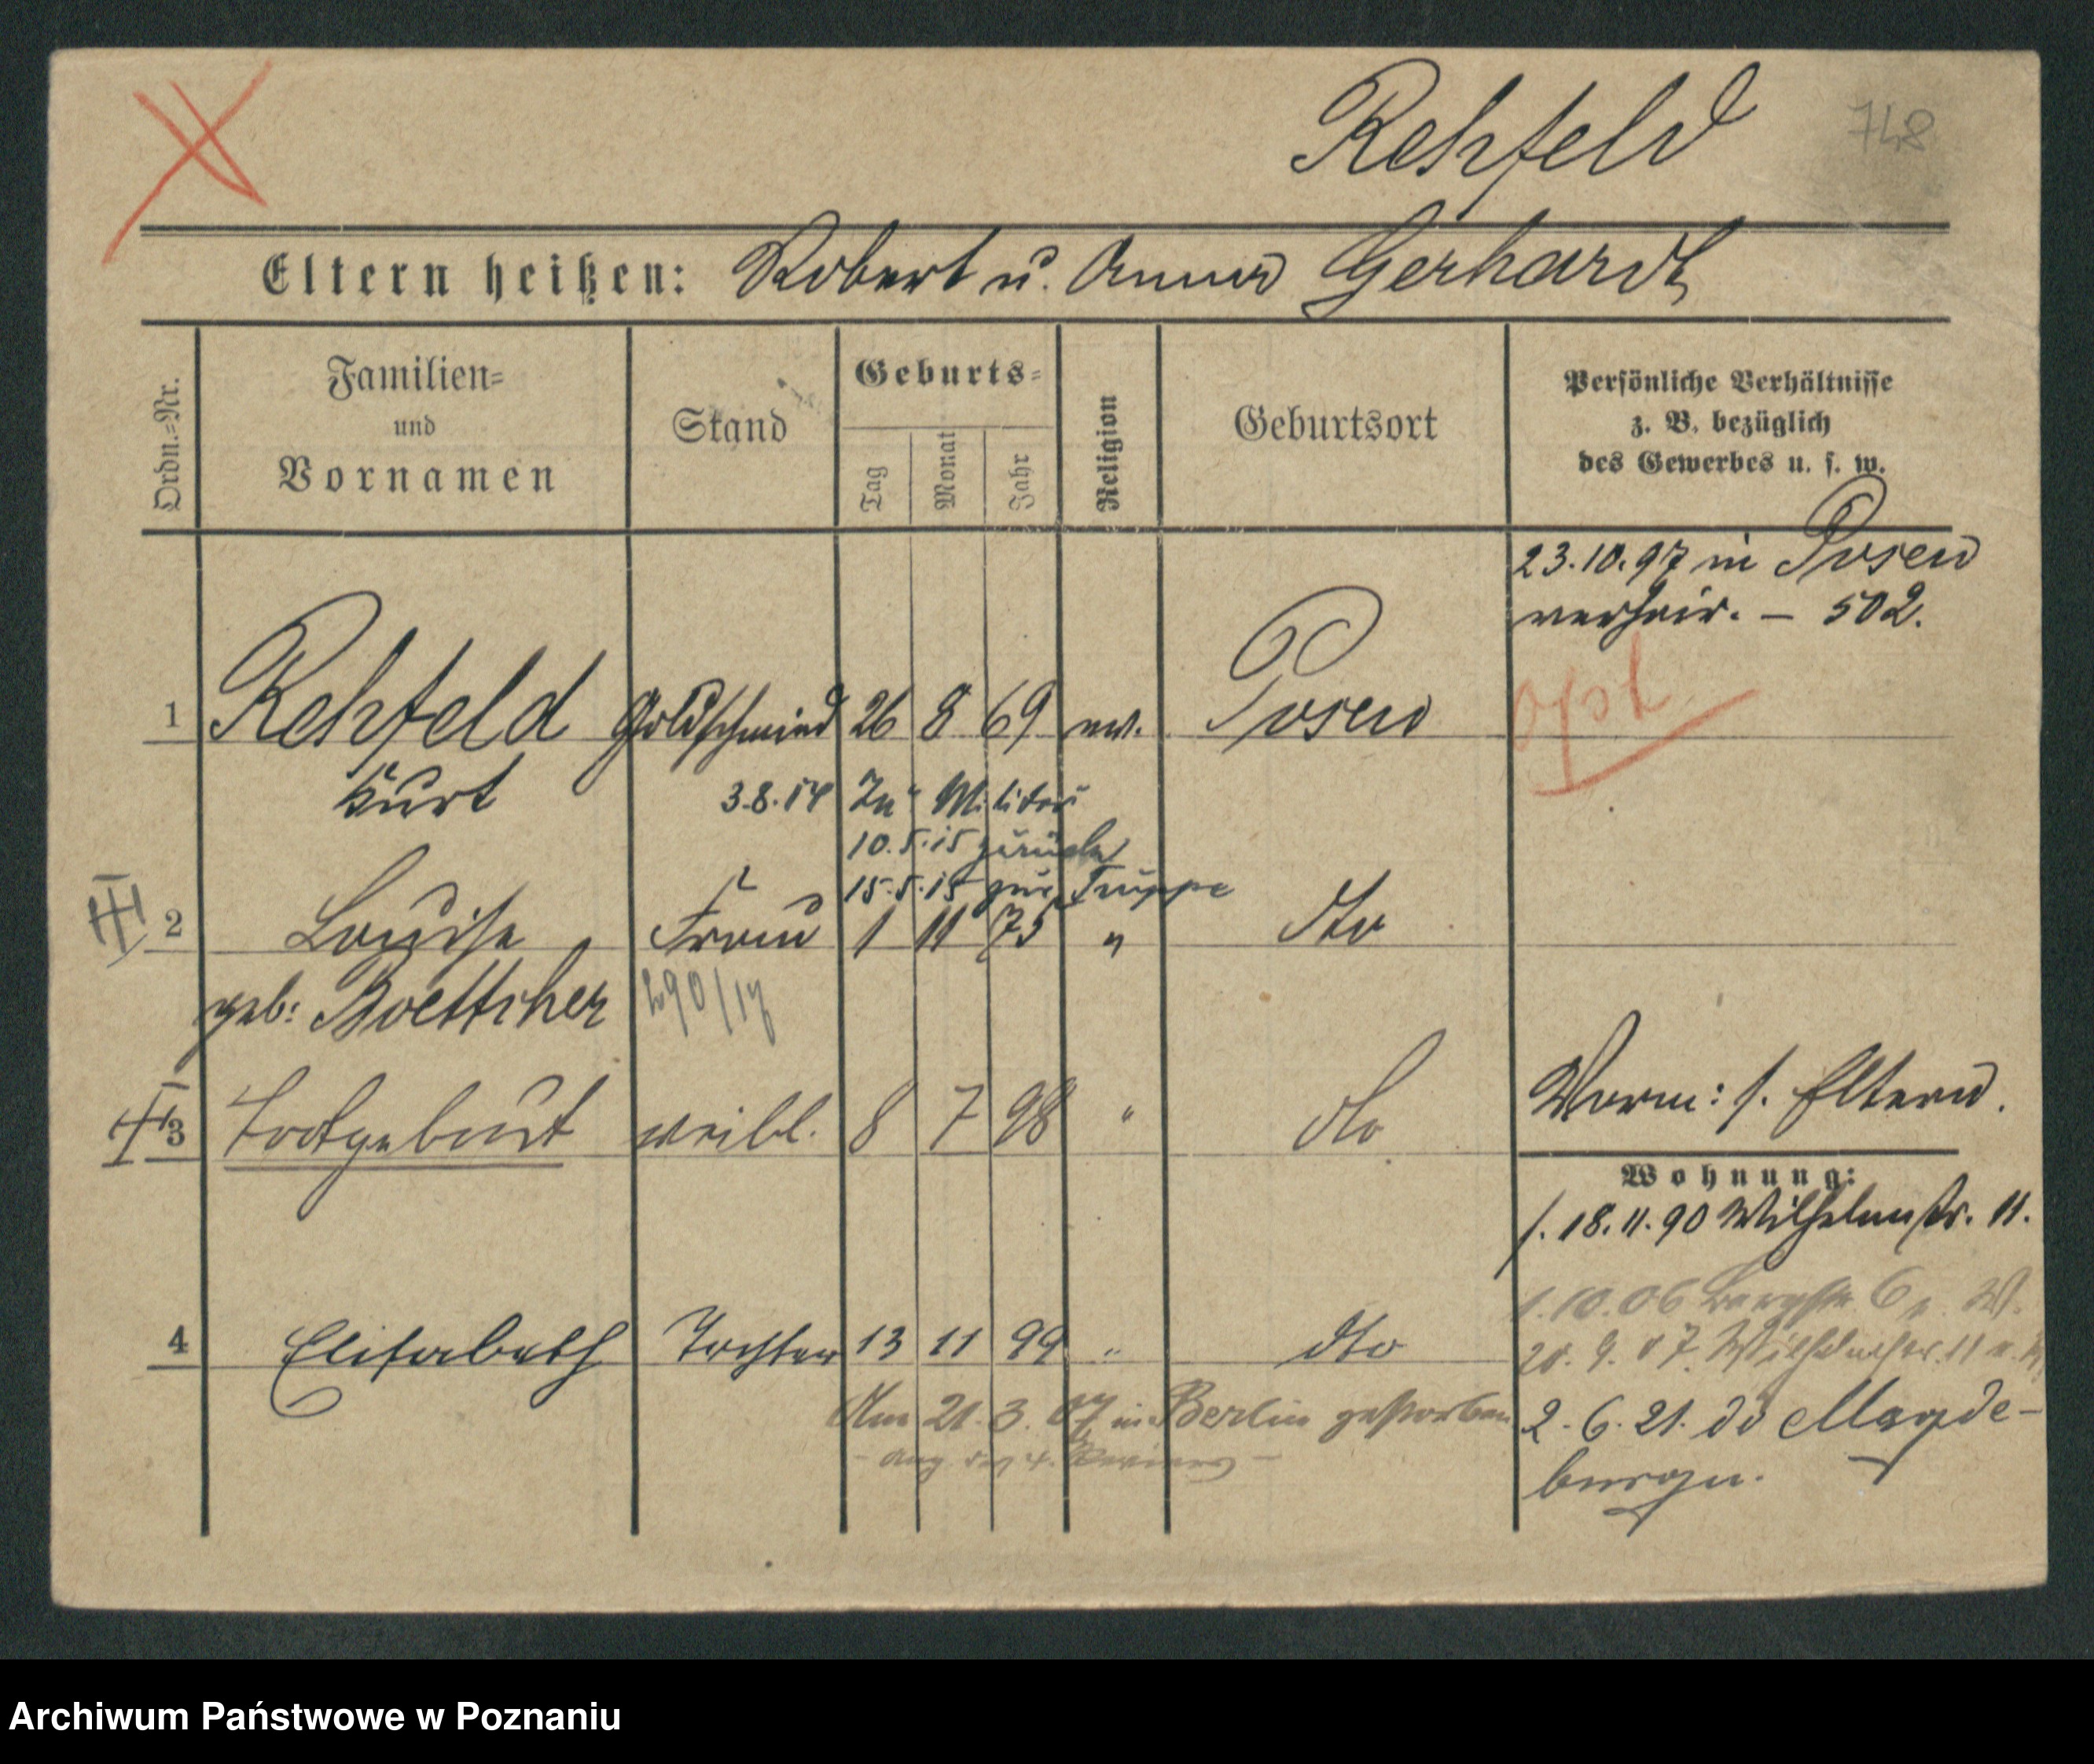 Rehfeld 748
Eltern heißen: Robert u. Anna Gerhardt
Ordn.=Nr.
Familien=
und
Vornamen
Stand
Geburts=
Tag
Monat
Jahr
Religion
Geburtsort
Persönliche Verhältnisse
z. B. bezüglich
des Gewerbes u. s. w.
23.10.97 in Posen
verheir. – 502.
1 Rehfeld Goldschmied 26 8 69 ev. Posen
opt
Kurt
3.8.14 Zu Militär
10.5.15 zurück
15.5.15 zur Truppe
2 Louise Frau 1 11 75 " dto
geb: Boettcher
3 Todtgeburt weibl. 8 7 98 " dto
Vorm: s. Eltern.
Wohnung:
1.18.11.90 Wilhelmstr. 11.
1.10.06 Bergstr. 6
20.9.07. Wilhelmstr. 11
4 Elisabeth Tochter 13 11 99 " dto
Am 21.3.07 in Berlin gestorben
2.6.21. do Magde-
burg
Archiwum Państwowe w Poznaniu